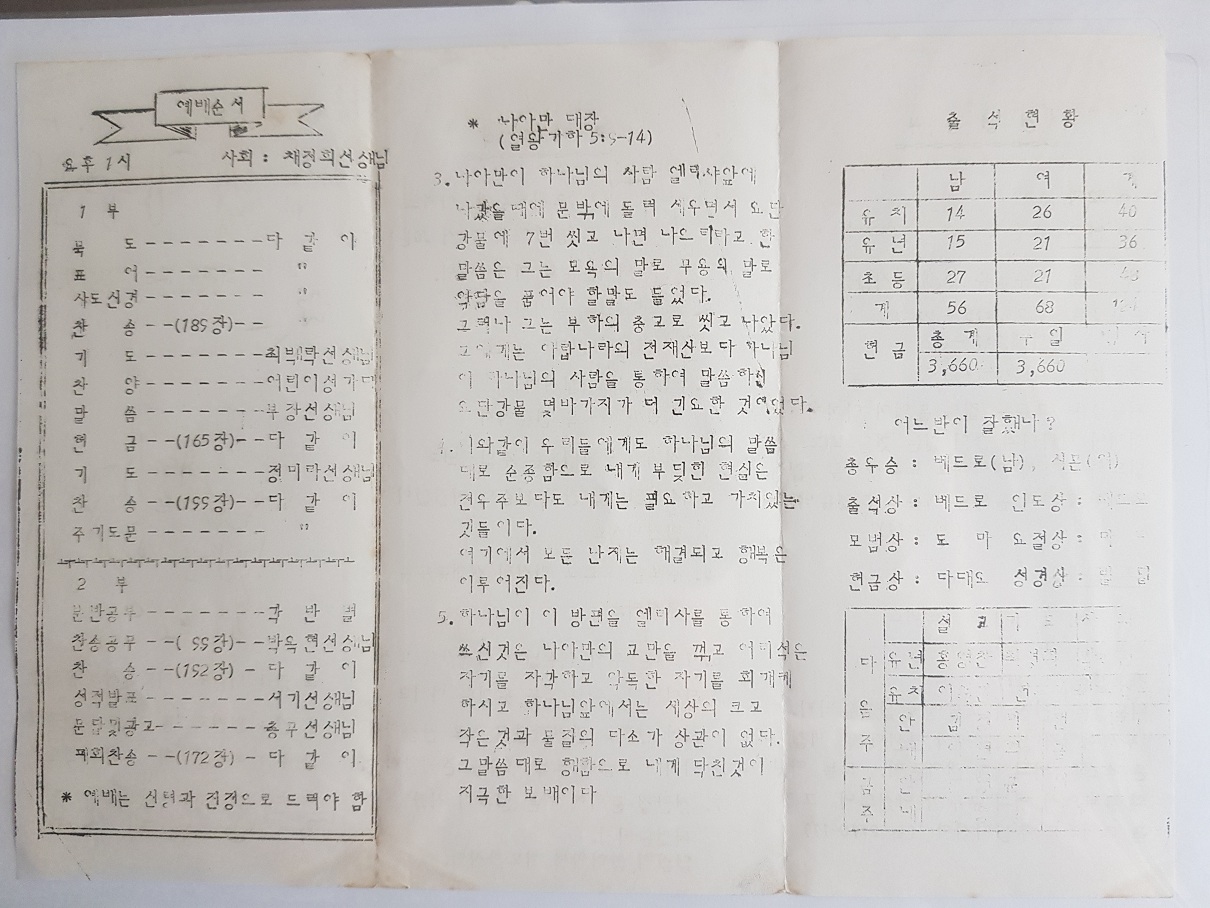 예배순서
요후 1시 사회 : 채정희선생님
1 부
묵 도 - - - - - - - 다 같 이
표 어 - - - - - - - "
사도신경 - - - - - - - "
찬 송 - -(189장)- - "
기 도 - - - - - - - 최백락선생님
찬 양 - - - - - - - 어린이성가대
말 씀 - - - - - - - 부장선생님
헌 금 - -(165장)- - 다 같 이
기 도 - - - - - - - 정미락선생님
찬 송 - -(199장)- - 다 같 이
주기도문 - - - - - - - "
2 부
분반공부 - - - - - - - 각 반 별
찬송공부 - -( 99장)- -박옥현선생님
찬 송 - -(192장) - 다 같 이
성적발표 - - - - - - - 서기선생님
광고- - - - - - - 총무선생님
폐회찬송 - -(172장) - 다 같 이
* 예배는 신령과 진정으로 드려야 함
* 나아만 대장
(열왕기하 5: -14)
3. 나아만이 하나님의 사람 엘리사앞에
나갔을때에 문밖에 돌려 세우면서 요단
강물에 7번 씻고 나면 나으리라고 한
말씀은 그는 모욕의 말로 무용의 말로
악담을 품어야 할말로 들었다.
그러나 그는 부하의 충고로 씻고 나았다.
아람나라의 전재산보다 하나님
이 하나님의 사람을 통하여 말씀하신
요단강물 몇바가지가 더 긴요한 것이었다.
4. 이와같이 우리들에게도 하나님의 말씀
대로 순종함으로 내게 부딪힌 현실은
전우주보다도 내게는 필요하고 가치있는
것들이다.
여기에서 모든 난제는 해결되고 행복은
이루어진다.
5. 하나님이 이 방편을 엘리사를 통하여
쓰신것은 나아만의 교만을 꺾고 어리석은
자기를 자각하고 악독한 자기를 회개케
하시고 하나님앞에서는 세상의 크고
작은것과 물질의 다소가 상관이 없다.
그말씀대로 행함으로 내게 닥친것이
지극한 보배이다
출 석 현 황
남 여 계
유 치 14 26 40
유 년 15 21 36
초 등 27 21 48
계 56 68
헌 금 총 계 주 일
3,660 3,660
어느반이 잘했나?
총우승 : 베드로(남),
출석상 : 베드로 인도상 :
모범상 : 도 마 요절상 :
헌금상 : 마태요 성경상 :
설 교 기 도
다 유년 홍영찬
유치
음 안
주 내
금 안
주 내